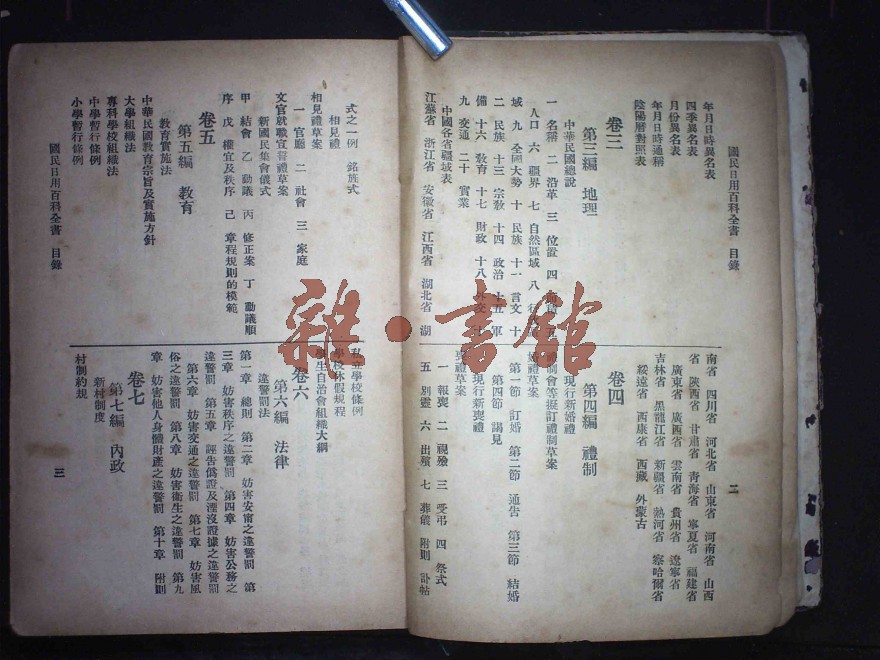 國民日用百科全書 目錄
二
年月日時異名表
四季異名表
月份異名表
年月日時通稱
陰陽曆對照表
卷三
第三編 地理
中華民國總說
一 名稱 二 沿革 三 位置 四
人口 六 疆界 七 自然區域 八
域 九 全國大勢 十 民族 十一 言文 十
二 民族 十三 宗教 十四 政治 十五 軍
備 十六 教育 十七 財政 十八 外交 十
九 交通 二十 實業
中國各省疆域表
江蘇省 浙江省 安徽省 江西省 湖北省 湖
南省 四川省 河北省 山東省 河南省 山西
省 陝西省 甘肅省 青海省 寧夏省 福建省
廣東省 廣西省 雲南省 貴州省 遼寧省
吉林省 黑龍江省 新疆省 熱河省 察哈爾省
綏遠省 西康省 西藏 外蒙古
卷四
第四編 禮制
現行新婚禮
制會等擬訂禮制草案
婚禮草案
第一節 訂婚 第二節 通告 第三節 結婚
第四節 謁見
現行新喪禮
喪禮草案
一 報喪 二 視殮 三 受弔 四 祭式
五 別靈 六 出殯 七 葬儀 附則 訃帖
式之一例 銘旌式
相見禮
相見禮草案
一 官廳 二 社會 三 家庭
文官就職宣誓禮草案
新國民集會儀式
甲 結會 乙 動議 丙 修正案 丁 動議順
序 戊 權宜及秩序 己 章程規則的模範
卷五
第五編 教育
教育實施法
中華民國教育宗旨及實施方針
大學組織法
專科學校組織法
中學暫行條例
小學暫行條例
私立學校條例
學校休假規程
學生自治會組織大綱
卷六
第六編 法律
違警罰法
第一章 總則 第二章 妨害安甯之違警罰 第
三章 妨害秩序之違警罰 第四章 妨害公務之
違警罰 第五章 誣告偽證及湮沒證據之違警罰
第六章 妨害交通之違警罰 第七章 妨害風
俗之違警罰 第八章 妨害衛生之違警罰 第九
章 妨害他人身體財產之違警罰 第十章 附則
卷七
第七編 內政
新村制度
村制約規
國民日用百科全書 目錄
三
雜·書館